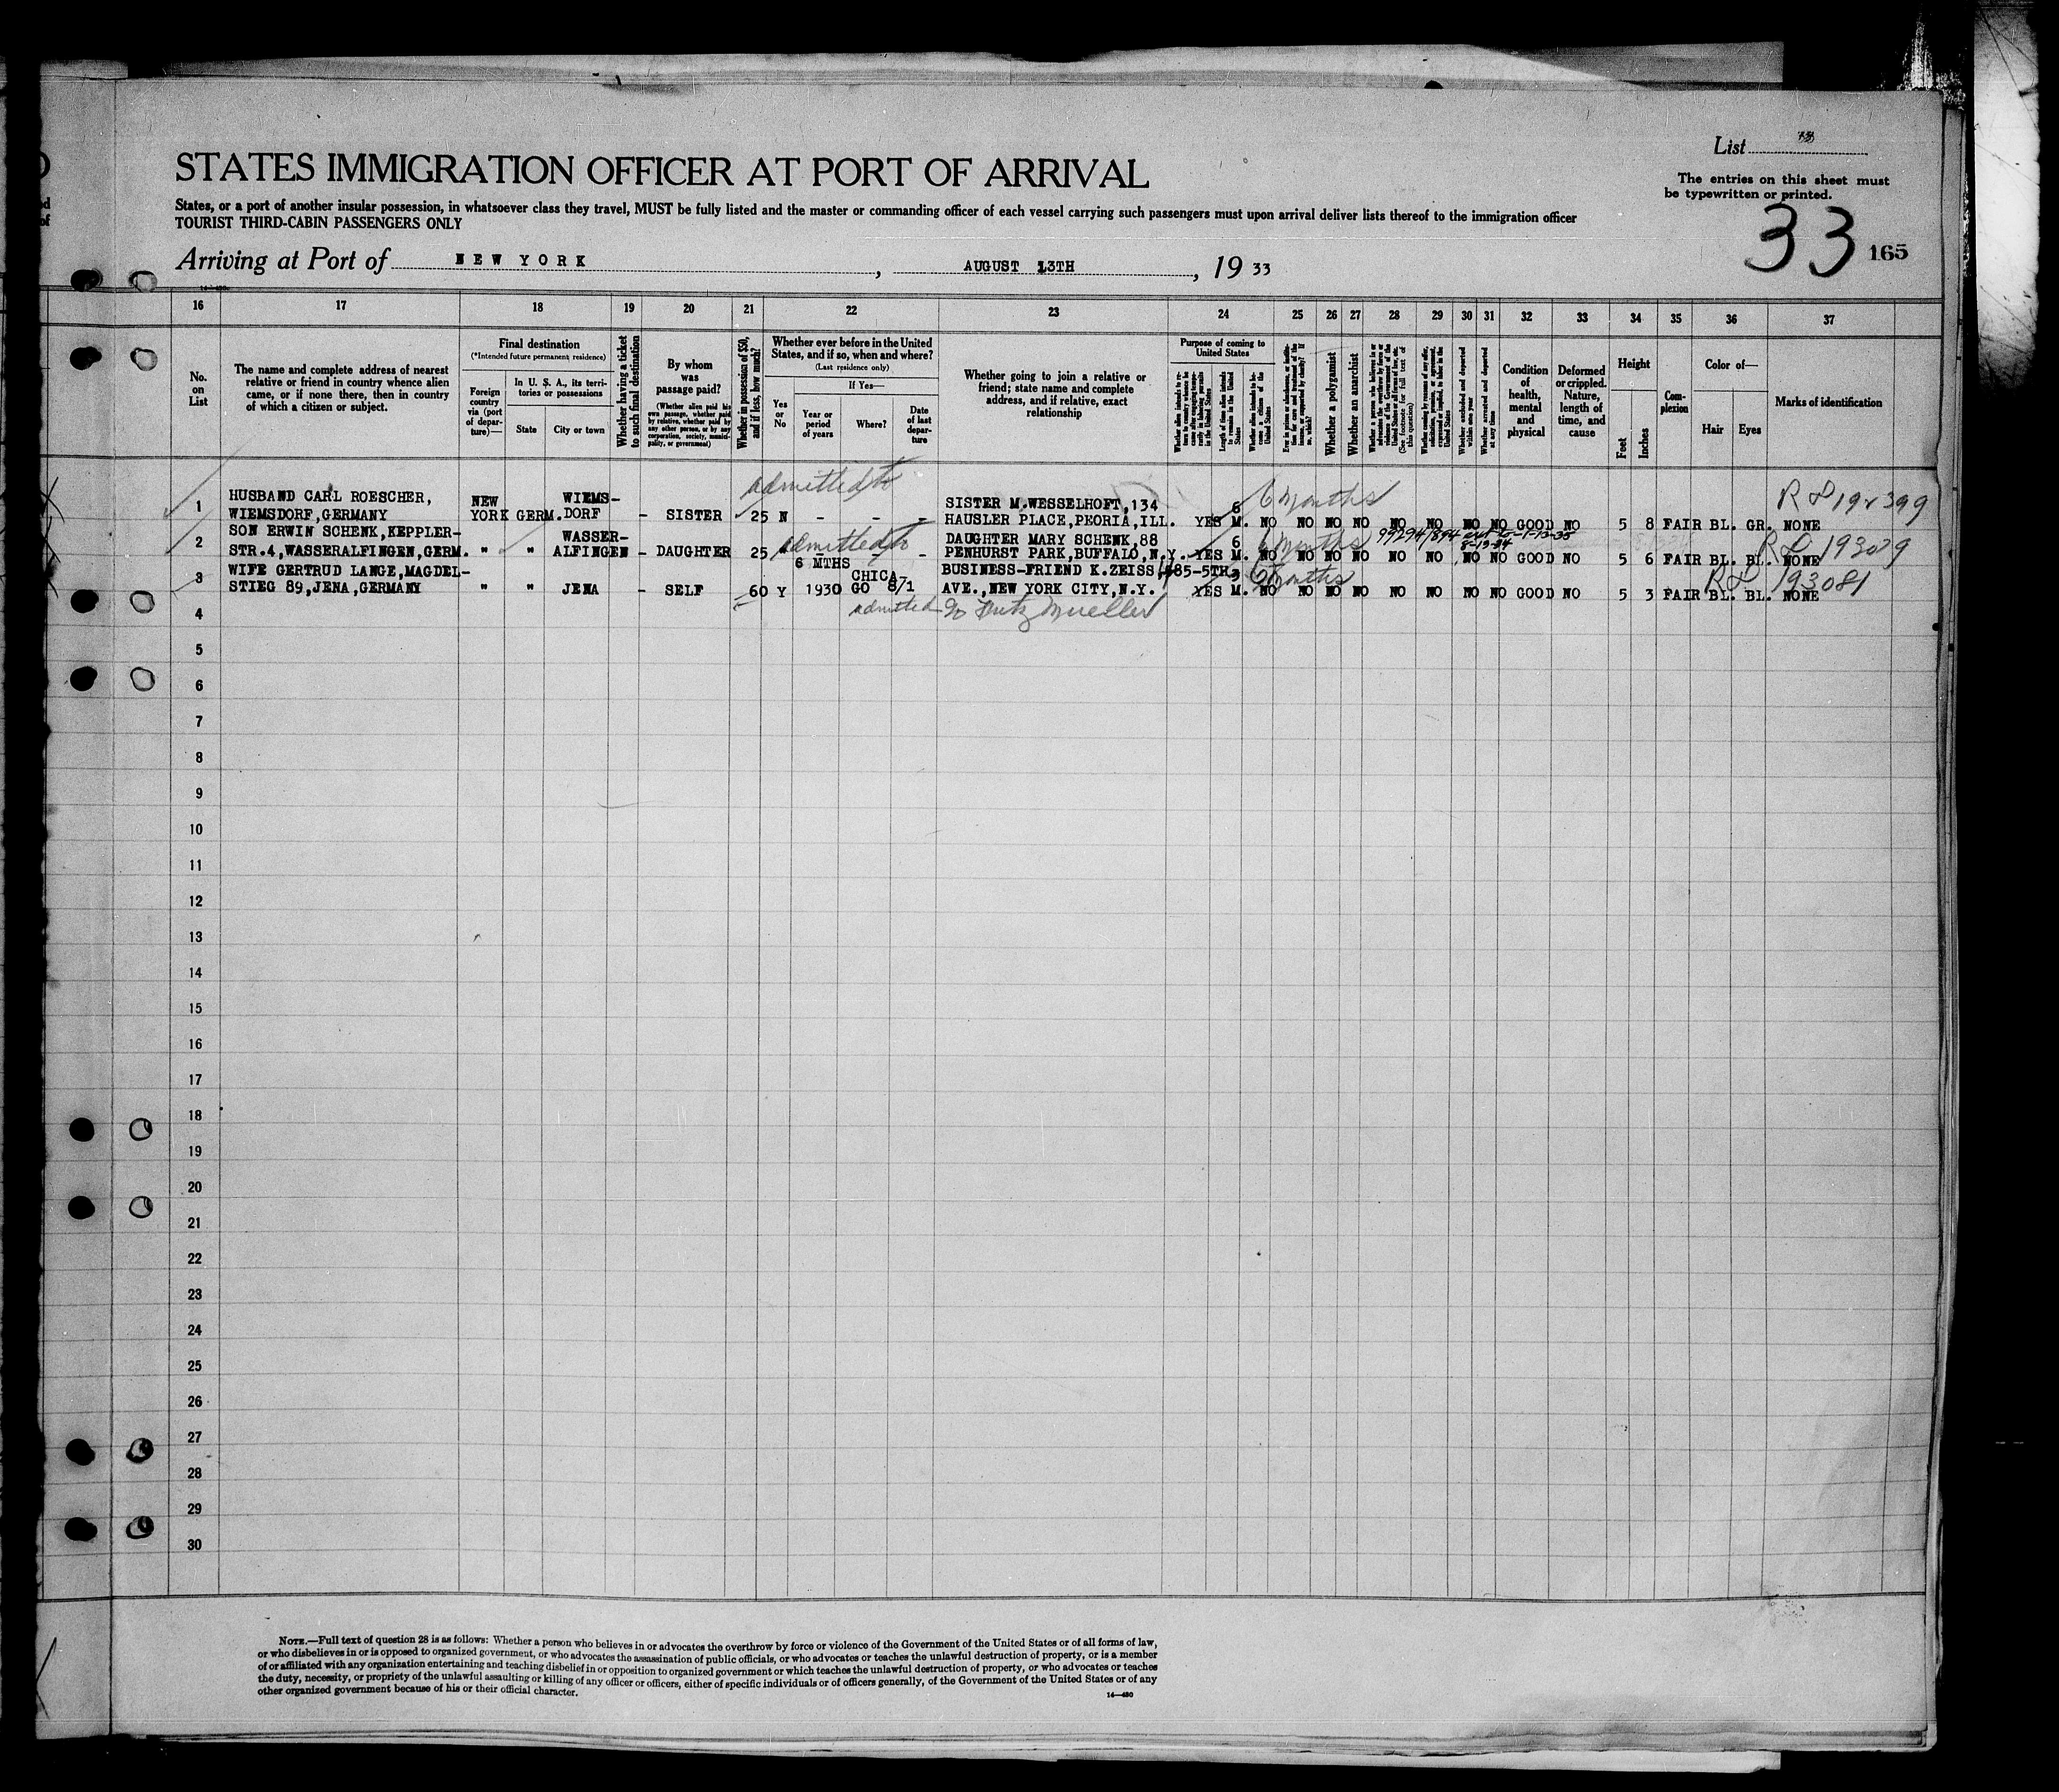 List 33
STATES IMMIGRATION OFFICER AT PORT OF ARRIVAL
The entries on this sheet must
be typewritten or printed.
States, or a port of another insular possession, in whatsoever class they travel, MUST be fully listed and the master or commanding officer of each vessel carrying such passengers must upon arrival deliver lists thereof to the immigration officer
TOURIST THIRD-CABIN PASSENGERS ONLY
33 165
Arriving at Port of NEW YORK, AUGUST 13TH, 19 33
16 17 18 19 20 21 22 23 24 25 26 27 28 29 30 31 32 33 34 35 36 37
No.
on
List
The name and complete address of nearest
relative or friend in country whence alien
came, or if none there, then in country
of which a citizen or subject.
Final destination
(*Intended future permanent residence)
Foreign
country
via (port
of depar-
ture)—
In U. S. A., its terri-
tories or possessions
State
City or town
Whether having a ticket
to such final destination
By whom
was
passage paid?
(Whether alien paid his
own passage, whether paid
by relative, whether paid by
any other person, or by any
corporation, society, munici-
pality, or government)
Whether in possession of $50,
and if less, how much?
Whether ever before in the United
States, and if so, when and where?
(Last residence only)
Yes
or
No
If Yes—
Year or
period
of years
Where?
Date
of last
depar-
ture
Whether going to join a relative or
friend; state name and complete
address, and if relative, exact
relationship
Purpose of coming to
United States
Whether a polygamist
Whether an anarchist
Condition
of
health,
mental
and
physical
Deformed
or crippled.
Nature,
length of
time, and
cause
Height
Feet
Inches
Com-
plexion
Color of—
Hair
Eyes
Marks of identification
admitted to 6 Months
1 HUSBAND CARL ROESCHER, NEW WIEMS- SISTER M.WESSELHOFT,134 6
WIEMSDORF,GERMANY YORK GERM. DORF - SISTER 25 N - - - HAUSLER PLACE,PEORIA,ILL. YES M. NO NO NO NO NO NO NO NO GOOD NO 5 8 FAIR BL. GR. NONE
admitted to 6 months
2 SON ERWIN SCHENK,KEPPLER- WASSER- DAUGHTER MARY SCHENK,88 6
STR.4,WASSERALFINGEN,GERM. " " ALFINGEN - DAUGHTER 25 - PENHURST PARK,BUFFALO,N.Y. YES M. NO NO NO NO NO NO NO NO GOOD NO 5 6 FAIR BL. BL. NONE
3 WIFE GERTRUD LANGE,MAGDEL- 6 MTHS CHICA- BUSINESS-FRIEND K.ZEISS,485-5TH 6 months
STIEG 89,JENA,GERMANY " " JENA - SELF 60 Y 1930 GO 8/1 AVE.,NEW YORK CITY,N.Y. YES M. NO NO NO NO NO NO NO NO GOOD NO 5 3 FAIR BL. BL. NONE
193081
4 admitted to Fritz Mueller
5
6
7
8
9
10
11
12
13
14
15
16
17
18
19
20
21
22
23
24
25
26
27
28
29
30
NOTE.—Full text of question 28 is as follows: Whether a person who believes in or advocates the overthrow by force or violence of the Government of the United States or of all forms of law,
or who disbelieves in or is opposed to organized government, or who advocates the assassination of public officials, or who advocates or teaches the unlawful destruction of property, or is a member
of or affiliated with any organization entertaining and teaching disbelief in or opposition to organized government or which teaches the unlawful destruction of property, or who advocates or teaches
the duty, necessity, or propriety of the unlawful assaulting or killing of any officer or officers, either of specific individuals or of officers generally, of the Government of the United States or of any
other organized government because of his or their official character.
14—480